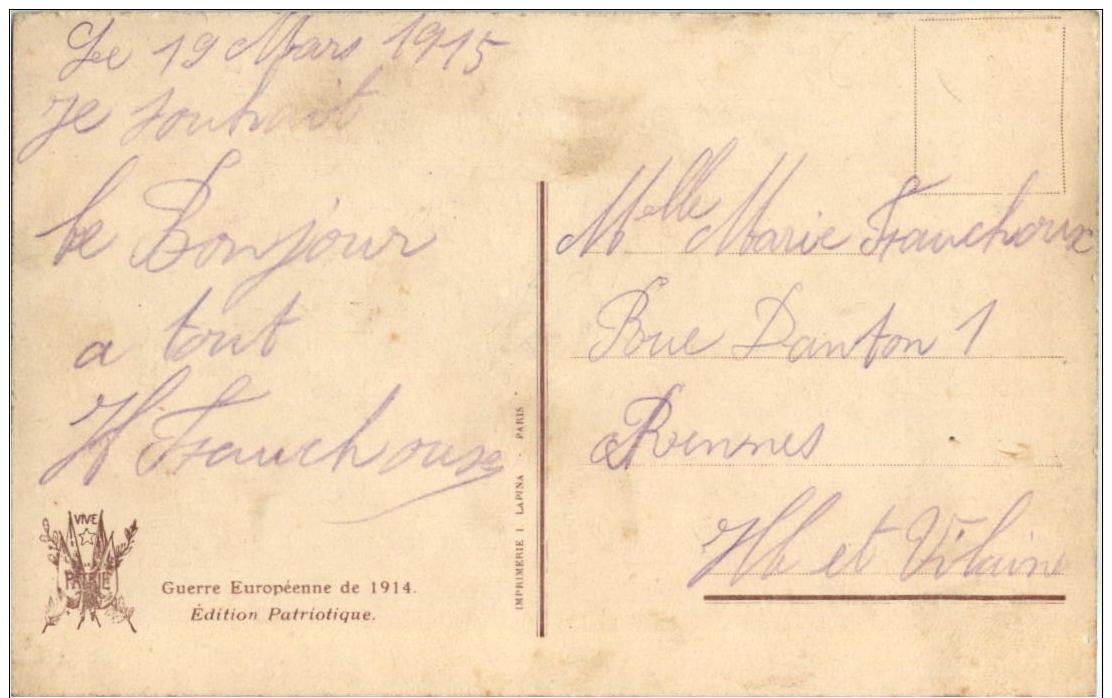 Le 19 Mars 1915
Je souhait
le Bonjour
a tout
H Franchoux
VIVE
LA
PATRIE
Guerre Européenne de 1914.
Édition Patriotique.
IMPRIMERIE I. LAPINA - PARIS
Melle Marie Franchoux
Rue Danton 1
Rennes
Ille et Vilaine